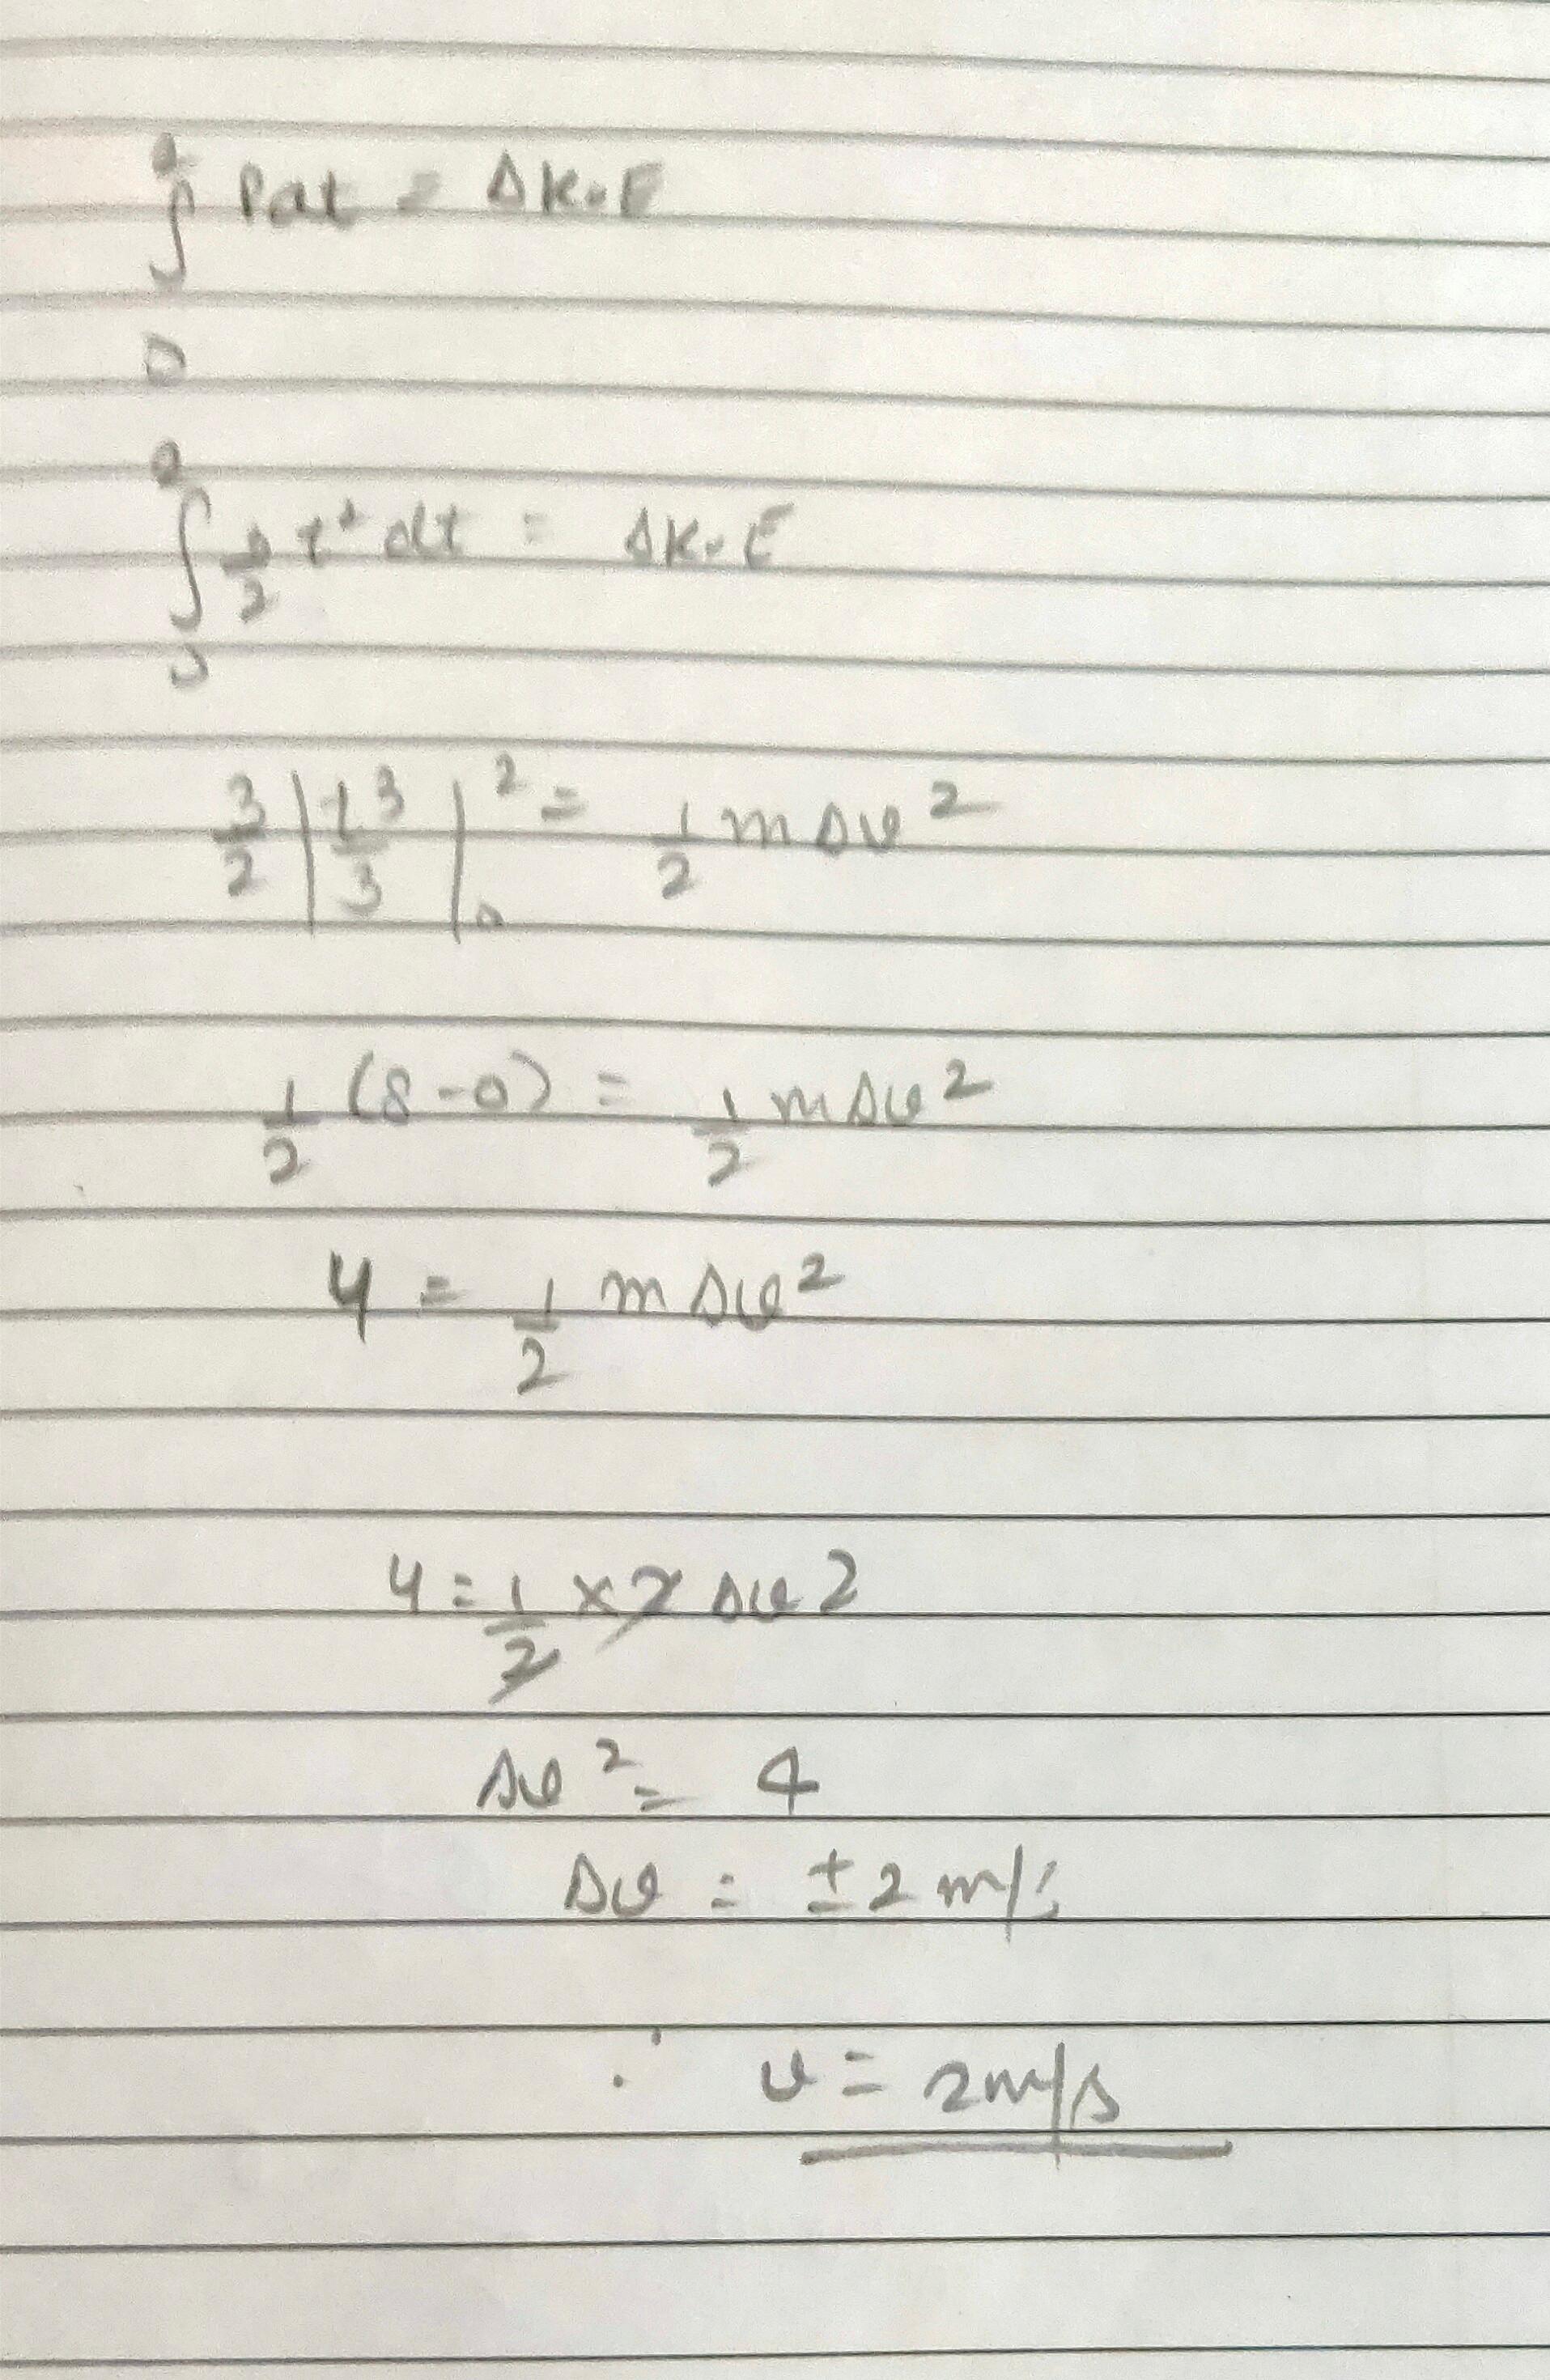 ∫₀² Pdt = ΔK.E
∫₀² 3/2 t² dt = ΔK.E
3/2 | t³/3 |₀² = 1/2 m Δv²
1/2 (8-0) = 1/2 m Δv²
4 = 1/2 m Δv²
4 = 1/2 × 2 Δv²
Δv² = 4
Δv = ± 2 m/s
∴ v = 2m/s